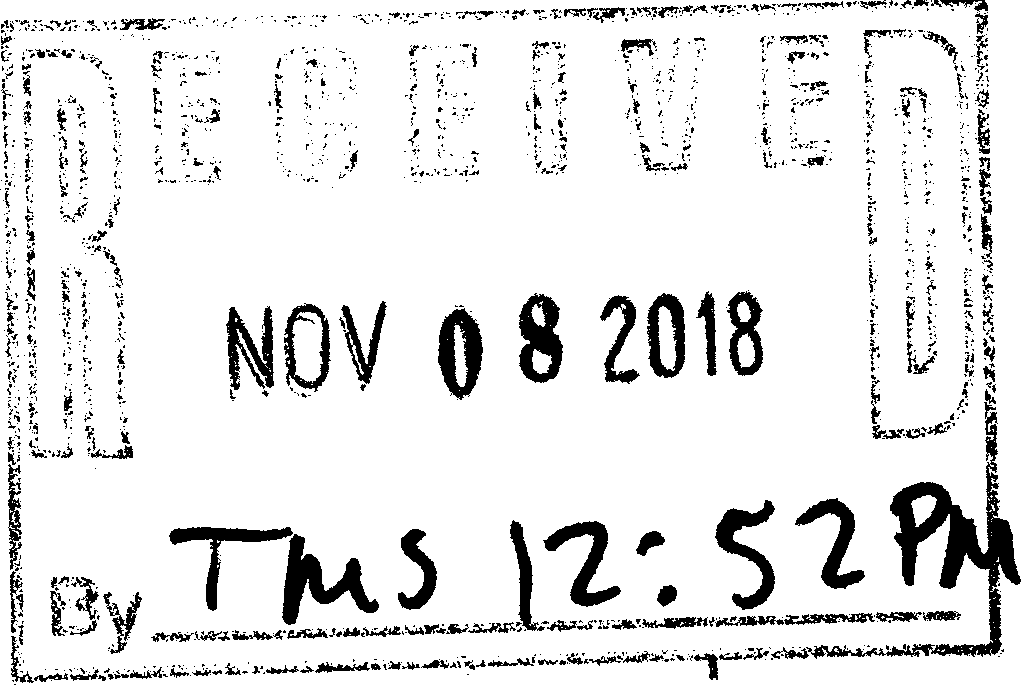 RECEIVED
NOV 08 2018
By TMS 12:52 PM